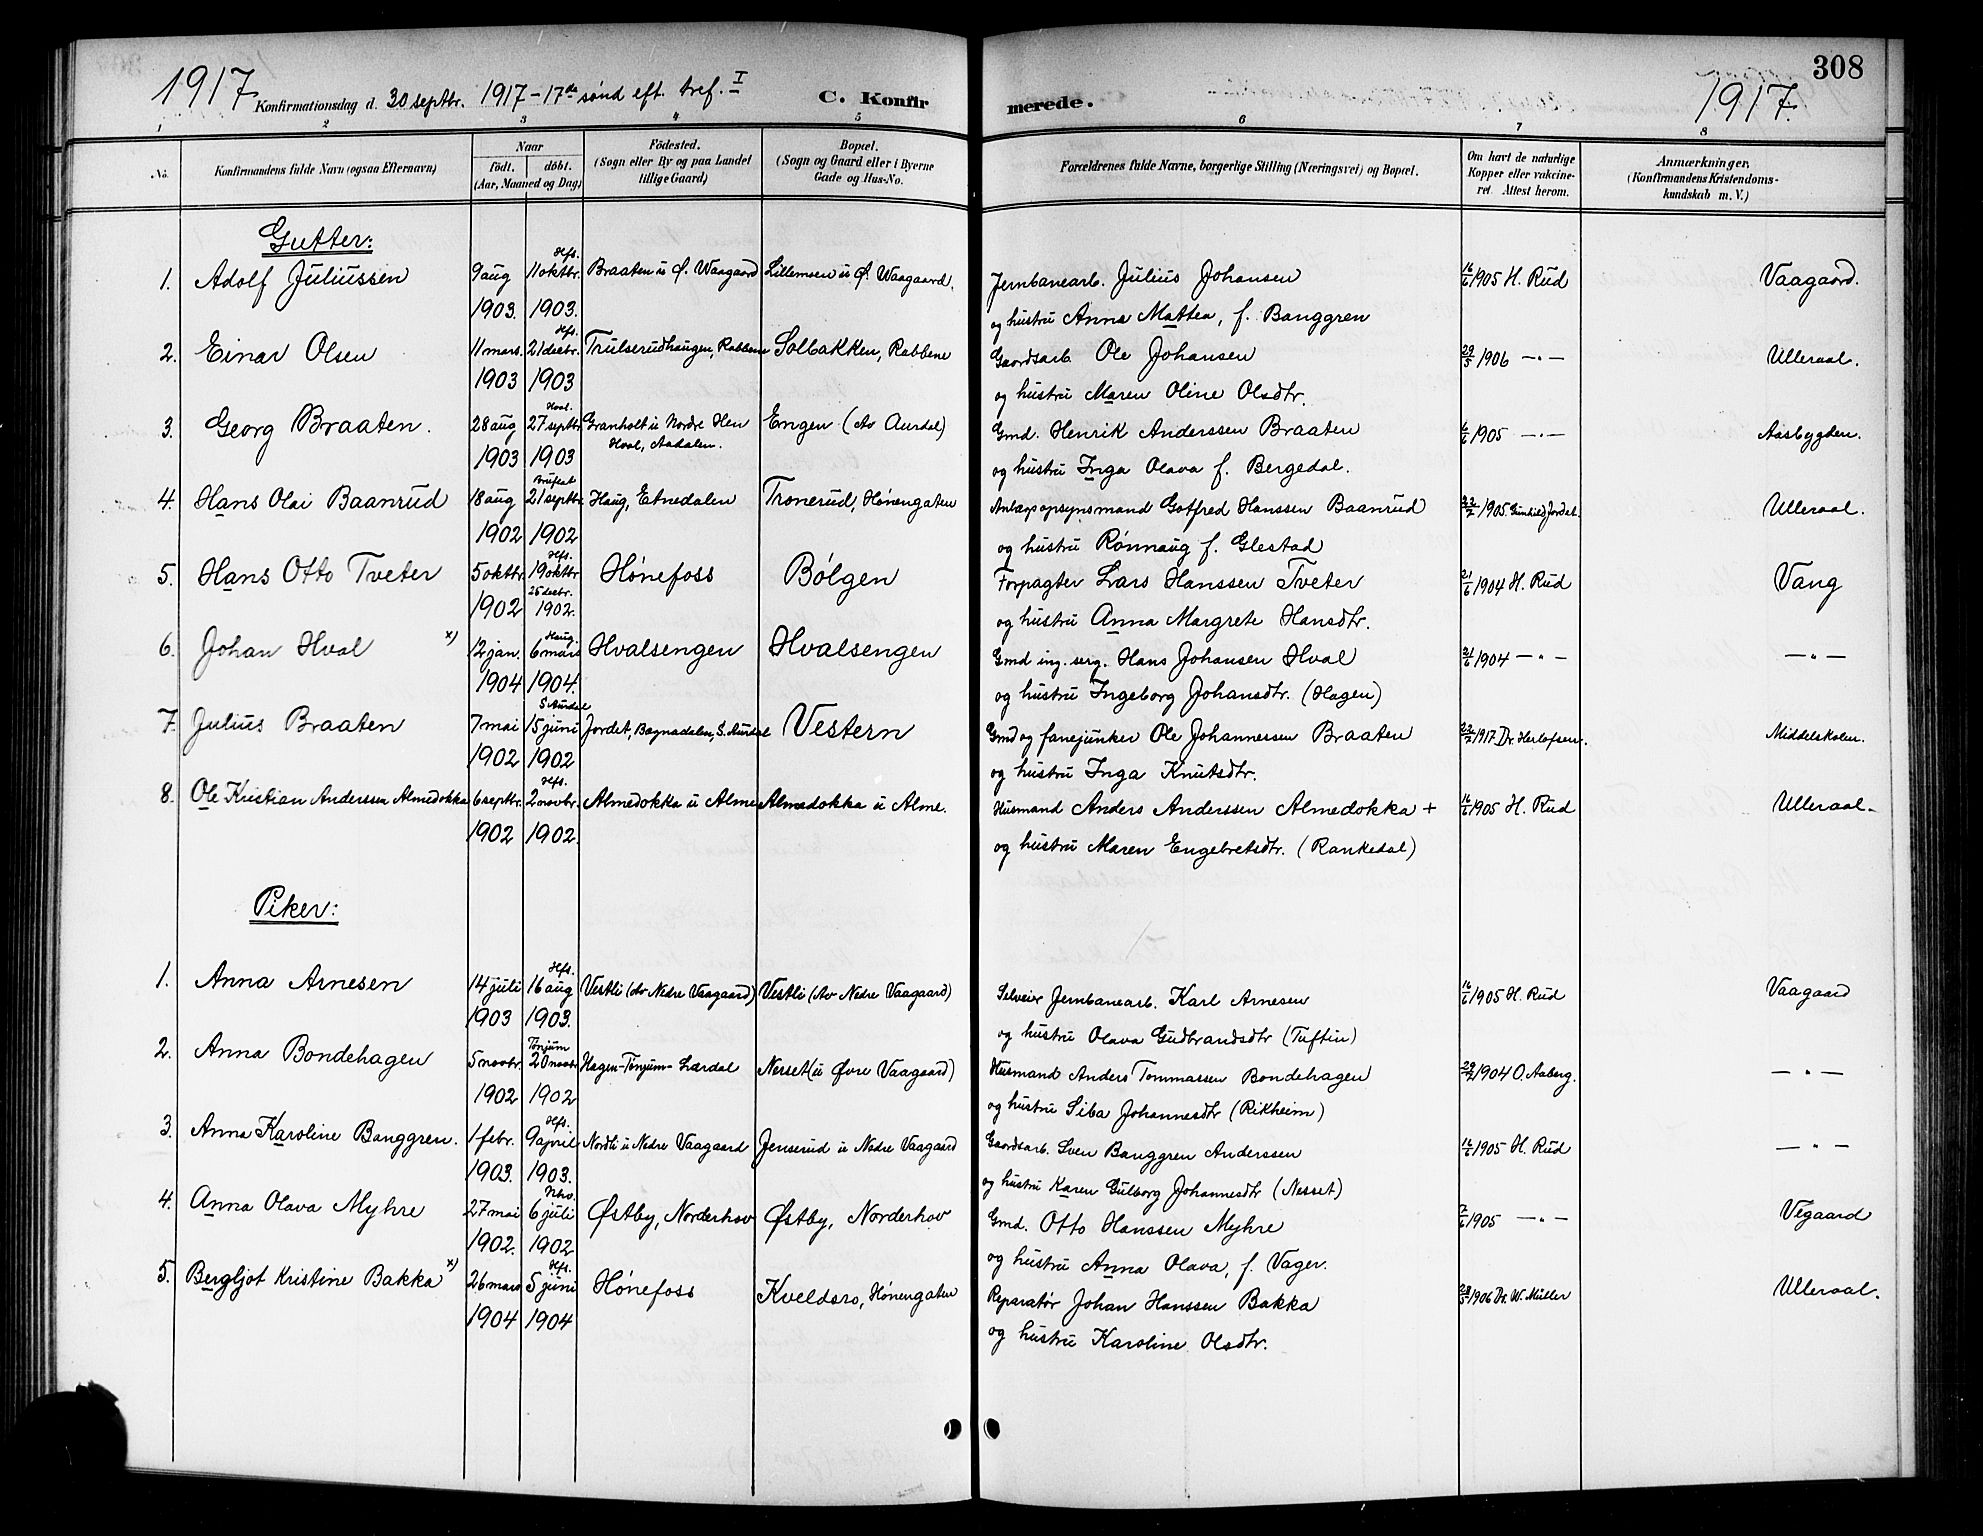 308
1917 Konfirmationsdag d. 30 septbr. 1917 - 17de sønd eft. tref. I C. Konfirmerede. 1917.
1 2 3 4 5 6 7 8
No. Konfirmandens fulde Navn (ogsaa Efternavn) Naar født. døbt. (Aar, Maaned og Dag) Födested. (Sogn eller By og paa Landet tillige Gaard) Bopæl. (Sogn og Gaard eller i Byerne Gade og Hus-No. Forældrenes fulde Navne, borgerlige Stilling (Næringsvei) og Bopæl. Om havt de naturlige Kopper eller vakcineret. Attest herom. Anmærkninger, (Konfirmandens Kristendomskundskab m. V.)
Gutter:
Hfs.
1. Adolf Juliussen 9 aug 11 oktbr. Braaten u Ø. Waagaard Lillemoen u Ø. Waagaard. Jernbanearb. Julius Johansen 16/6 1905 H. Rud Vaagaard.
1903. 1903. og hustru Anna Mattea, f. Banggren
Hfs.
2. Einar Olsen 11 mars. 21 decbr. Trulserudhaugen, Rabbene Solbakken, Rabbene Gaardsarb. Ole Johansen 29/5 1906 — " — Ulleraal.
1903 1903 og hustru Maren Oline Olsdtr.
Hval.
3. Georg Braaten. 28 aug 27 septbr. Granholt u Nordre Hen Engen (Av Aurdal) Gmd. Henrik Anderssen Braaten 6/6 1905 — " — Aasbygden.
1903 1903 Hval, Aadalen. og hustru Inga Olava f. Bergedal.
Brufeat
4. Hans Olai Baanrud 18 aug 21 septbr. Haug, Etnedalen Tronerud, Hønengaten Anlægsopsynsmand Gotfred Hanssen Baanrud 22/7 1905. Gunhild Jordet. Ulleraal.
1902 1902 og hustru Rønnaug f. Glestad
Hfs.
5. Hans Otto Tveter 5 oktbr 19 oktbr Hønefoss Bølgen Forpagter Lars Hanssen Tveter 21/6 1904 H. Rud Vang
26 decbr.
1902 1902. og hustru Anna Margrete Hansdtr.
Haug.
6. Johan Hval x) 12 jan. 6 mars Hvalsengen Hvalsengen Gmd ing. serg. Hans Johansen Hval 21/6 1904 — " — — " —
1904 1904. og hustru Ingeborg Johansdtr. (Hagen)
S. Aurdal
7. Julius Braaten 7 mai 15 juni Jordet, Bagnadalen, S. Aurdal Vestern Gmd og fanejunker Ole Johannessen Braaten 22/7 1917 Dr. Herlofsen. Middelskolen.
1902 1902 og hustru Inga Knutsdtr.
Hfs.
8. Ole Kristian Anderssen Almedokka 6 septbr. 2 novbr. Almedokka u Alme Almedokka u Alme. Husmand Anders Anderssen Almedokka + 16/6 1905 H. Rud Ulleraal.
1902 1902. og hustru Maren Engebretsdtr. (Rankedal)
Piker:
Hfs.
1. Anna Arnesen 14 juli 16 aug Vestli (Av Nedre Vaagaard) Vestli (Av Nedre Vaagaard) Selveier Jernbanearb. Karl Arnesen 16/6 1905 H. Rud Vaagaard
1903 1903. og hustru Olava Gudbrandsdtr (Tuftin)
Tønjum
2. Anna Bondehagen 5 novbr. 20 novbr Hagen-Tønjum-Lærdal Nesset (u Øvre Vaagaard) Husmand Anders Tommassen Bondehagen 29/2 1904 O. Aaberg. — " —
1902 1902 og hustru Siba Johannesdtr (Rikheim)
Hfs.
3. Anna Karoline Banggren. 1 febr. 9 april Nordli u Nedre Vaagaard Jenserud u Nedre Vaagaard Gaardsarb. Sven Banggren Anderssen 16/6 1905 H. Rud — " —
1903. 1903. og hustru Karen Gulborg Johannesdtr (Nesset)
Nhv.
4. Anna Olava Myhre 27 mai 6 juli Østby, Norderhov Østby, Norderhov Gmd. Otto Hanssen Myhre 7/6 1905 — " — Vegaard
1902. 1902 og hustru Anna Olava, f. Vager.
Hfs.
5. Bergljot Kristine Bakka x) 26 mars 5 juni Hønefoss Kveldsro, Hønengaten Reparatør Johan Hanssen Bakka 28/5 1906 Dr. W. Müller Ulleraal.
1904 1904 og hustru Karoline Olsdtr.